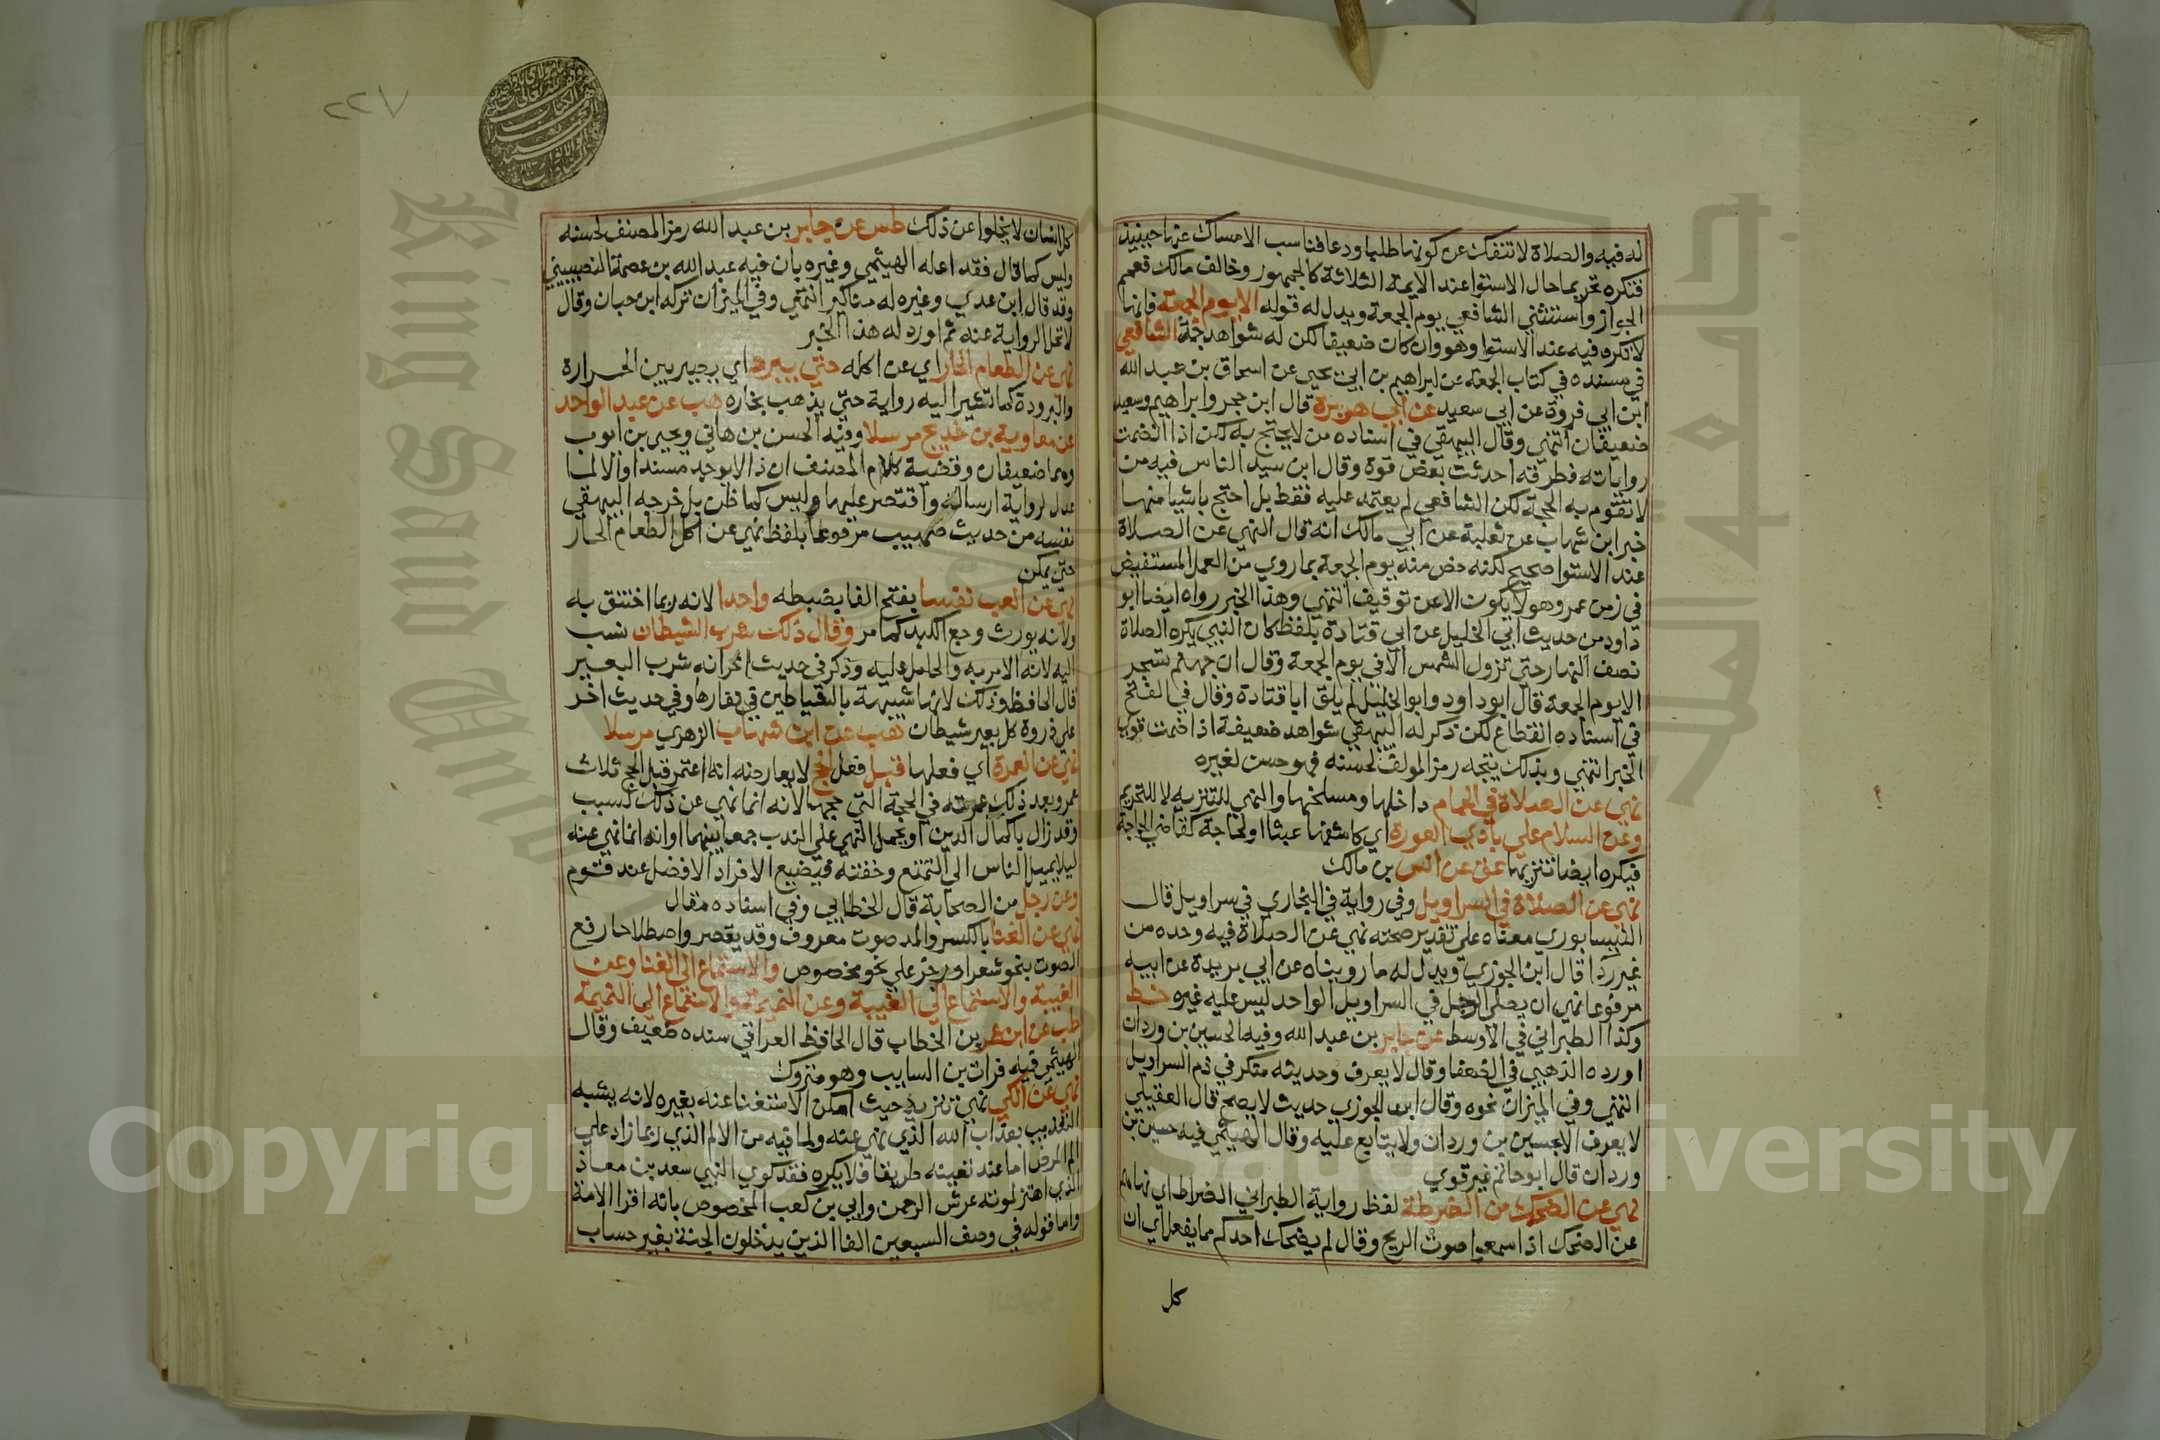 له فيه والصلاة لا تنفك عن كونها طلبا ودعا فناسب الامساك عنها حينيذ
فتكره تحريما حال الاستوا عند الايمة الثلاثة كالجمهور وخالف مالك فعمم
الجواز واستثني الشافعي يوم الجمعة ويدل له قوله الا يوم الجمعة فانها
لا تكره فيه عند الاستوا وهو وان كان ضعيفا لكن له شواهد جمة الشافعي
في مسنده في كتاب الجمعة عن ابراهيم بن ابي يحيى عن اسحاق بن عبد الله
ابن ابي فروة عن ابي سعيد عن ابي هريرة قال ابن حجر وابراهيم وسعيد
ضعيفان انتهي وقال البيهقي في اسناده من لا يحتج به لكن اذا انضمت
رواياته فطرقه احدثت بعض قوة وقال ابن سيد الناس فيه من
لا تقوم به الحجة لكن الشافعي لم يعتمد عليه فقط بل احتج باشيا منها
خبر ابن شهاب عن ثعلبة عن ابي مالك انه قال النهي عن الصلاة
عند الاستوا صحيح لكنه خص منه يوم الجمعة بما روي من العمل المستفيض
في زمن عمر وهو لا يكون الا عن توقيف انتهي وهذا الخبر رواه ايضا ابو
داود من حديث ابي الخليل عن ابي قتادة بلفظ كان النبي يكره الصلاة
نصف النهار حتي تزول الشمس الا في يوم الجمعة وقال ان جهنم تسجر
الا يوم الجمعة قال ابو داود وابو الخليل لم يلق ابا قتادة وقال في الفتح
في اسناده انقطاع لكن ذكر له البيهقي شواهد ضعيفة اذا ضمت قوي
الخبر انتهي وبذلك يتجه رمز المولف لحسنه فهو حسن لغيره
نهي عن الصلاة في الحمام داخلها ومسلخها والنهي للتنزيه لا للتحريم
وعن السلام علي بادي العورة اي كاشفها عبثا او لحاجة كقاضي الحاجة
فيكره ايضا تنزيها عق عن انس بن مالك
نهي عن الصلاة في السراويل وفي رواية في البخاري في سراويل قال
النيسابوري معناه علي تقدير صحته نهي عن الصلاة فيه وحده من
غير ردا قال ابن الجوزي ويدل له ما رويناه عن ابي بريدة عن ابيه
مرفوعا نهي ان يصلي الرجل في السراويل الواحد ليس عليه غيره خط
وكذا الطبراني في الاوسط عن جابر بن عبد الله وفيه الحسين بن وردان
اورده الذهبي في الضعفا وقال لا يعرف وحديثه منكر في ذم السراويل
انتهي وفي الميزان نحوه وقال ابن الجوزي حديث لا يصح قال العقيلي
لا يعرف الا بحسين بن وردان ولا يتابع عليه وقال الهيثمي فيه حسين بن
وردان قال ابو حاتم غير قوي
نهي عن الضحك من الضرطة لفظ رواية الطبراني الضراط اي نهاهم
عن الضحك اذا سمعوا صوت الريح وقال لم يضحك احدكم مما يفعل اي ان
كل
٢٢٧
كل انسان لا يخلوا عن ذلك طس عن جابر بن عبد الله رمز المصنف لحسنه
وليس كما قال فقد اعله الهيثمي وغيره بان فيه عبد الله بن عصمة النصيبيني
وقد قال ابن عدي وغيره له مناكير انتهي وفي الميزان تركه ابن حبان وقال
لا تحل الرواية عنه ثم اورد له هذا الخبر
نهي عن الطعام الحار اي عن اكله حتي يبرد اي يصير بين الحرارة
والبرودة كما تشير اليه رواية حتي يذهب بخاره هب عن عبد الواحد
عن معاوية بن خديج مرسلا وفيه الحسن بن هاني ويحيى بن ايوب
وهما ضعيفان وقضية كلام المصنف ان ذا لا يوجد مسندا والا لما
عدل لرواية ارساله واقتصر عليها وليس كما ظن بل خرجه البيهقي
نفسه من حديث صهيب مرفوعا بلفظ نهي عن اكل الطعام الحار
حتي يمكن
نهي عن العب نفسا بفتح الفا بضبطه واحدا لانه ربما اختنق به
ولانه يورث وجع الكبد كما مر وقال ذلك شرب الشيطان نسب
اليه لانه الامر به والحامل عليه وذكر في حديث اخر انه شرب البعير
قال الحافظ وذلك لانها شبيهة بالشياطين في نفارها وفي حديث اخر
علي ذروة كل بعير شيطان هب عن ابن شهاب الزهري مرسلا
نهي عن العمرة اي فعلها قبل فعل الحج لا يعارضه انه اعتمر قبل الحج ثلاث
عمر وبعد ذلك عمرته في الحجة التي حجها لانه انما نهي عن ذلك لسبب
وقد زال باكمال الدين او يحمل النهي علي الندب جمعا بينهما او انه انما نهي عنه
ليلا يميل الناس الي التمتع وخفته فيضيع الافراد الافضل عند قوم
وعن رجل من الصحابة قال الخطابي وفي اسناده مقال
نهي عن الغنا بالكسر والمد صوت معروف وقد يقصر واصطلاحا رفع
الصوت بنحو شعر او رجز علي نحو مخصوص والاستماع الي الغنا وعن
الغيبة والاستماع الي الغيبة وعن النميمة والاستماع الي النميمة
طب عن ابن عمر بن الخطاب قال الحافظ العراقي سنده ضعيف وقال
الهيثمي فيه فرات بن السايب وهو متروك
نهي عن الكي نهي تنزيه حيث امكن الاستغنا عنه بغيره لانه يشبه
التعذيب بعذاب الله الذي نهي عنه ولما فيه من الالم الذي ربما زاد علي
الم المرض اما عند تعينه طريقا فلا يكره فقد كوي النبي سعد بن معاذ
الذي اهتز لموته عرش الرحمن وابي بن كعب المخصوص بانه اقرا الامة
واما قوله في وصف السبعين الفا الذين يدخلون الجنة بغير حساب
جامعة الملك
King Saud Univ
Copyright © King Saud University